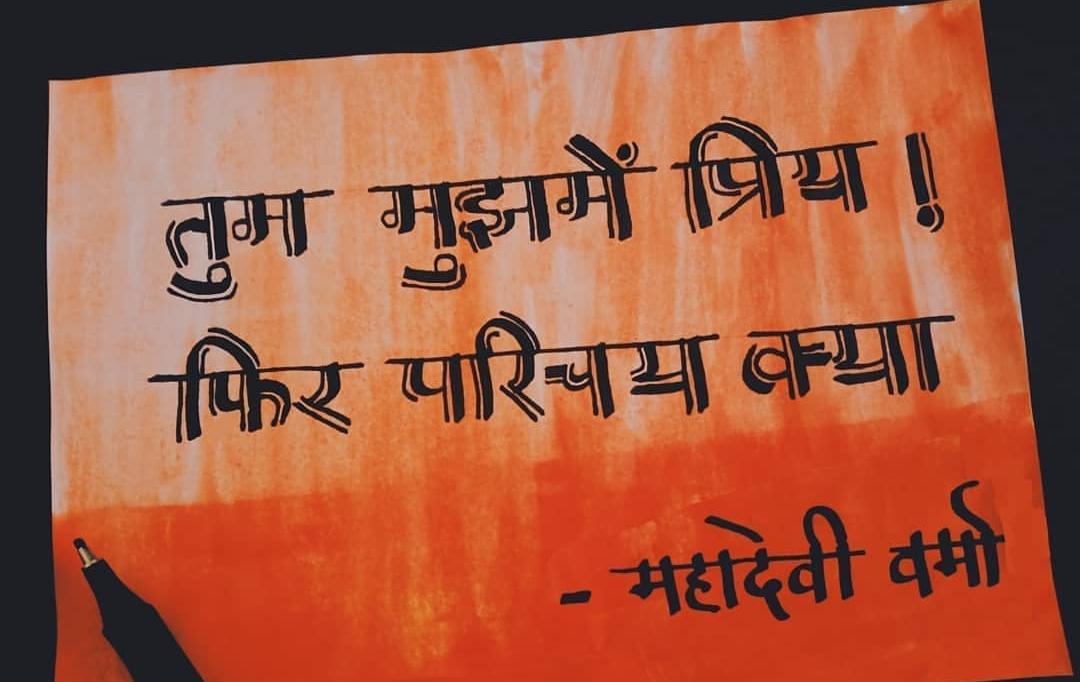 तुम मुझमें प्रिय !
फिर परिचय क्या
- महादेवी वर्मा